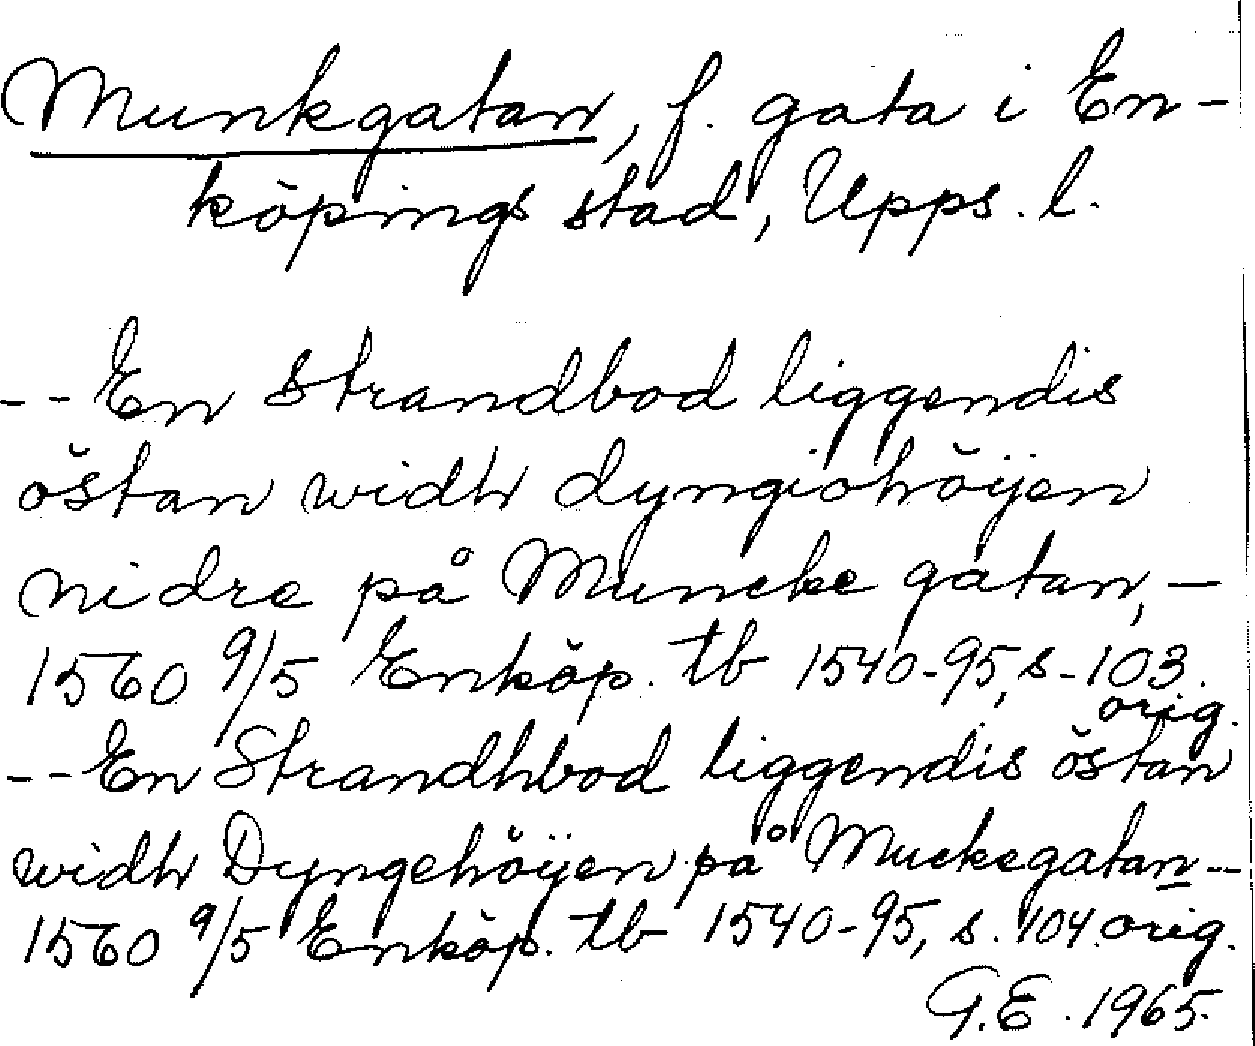 Munkgatan, f. gata i En-
köpings stad, Upps. l.
-- En strandbod liggendis
östan widh dyngiohöijen
nidre på Muncke gatan, -
1560 9/5 Enköp. tb 1540-95, s. 103.
orig.
-- En Strandhbod liggendis östan
widh Dyngehöijen på Muckegatan --
1560 9/5 Enköp. tb 1540-95, s. 104 orig.
G.E. 1965.